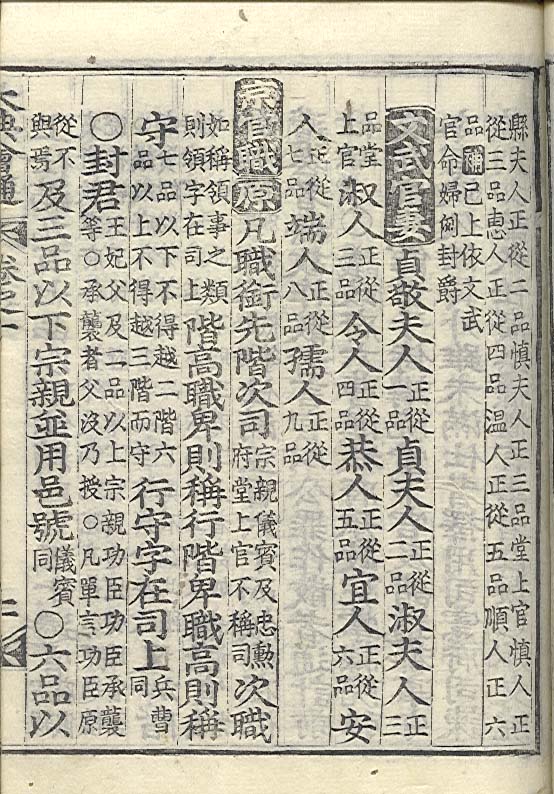 縣夫人正從二品愼夫人正三品堂上官愼人正
從三品惠人正從四品溫人正從五品順人正六
品補已上依文武
官命婦例封爵
文武官妻貞敬夫人正從一品貞夫人正從二品淑夫人正三
品堂上官淑人正從三品令人正從四品恭人正從五品宜人正從六品安
人正從七品端人正從八品孺人正從九品
京官職原凡職銜先階次司宗親儀賓及忠勳府堂上官不稱司次職
如稱領事之類則領字在司上階高職卑則稱行階卑職高則稱
守七品以下不得越二階六品以上不得越三階而守行守字在司上兵曹同
○封君王妃父及二品以上宗親功臣功臣承襲等○承襲者父沒乃授○凡單言功臣原
從不與焉及三品以下宗親並用邑號儀賓同○六品以
大典會通 卷之一 二